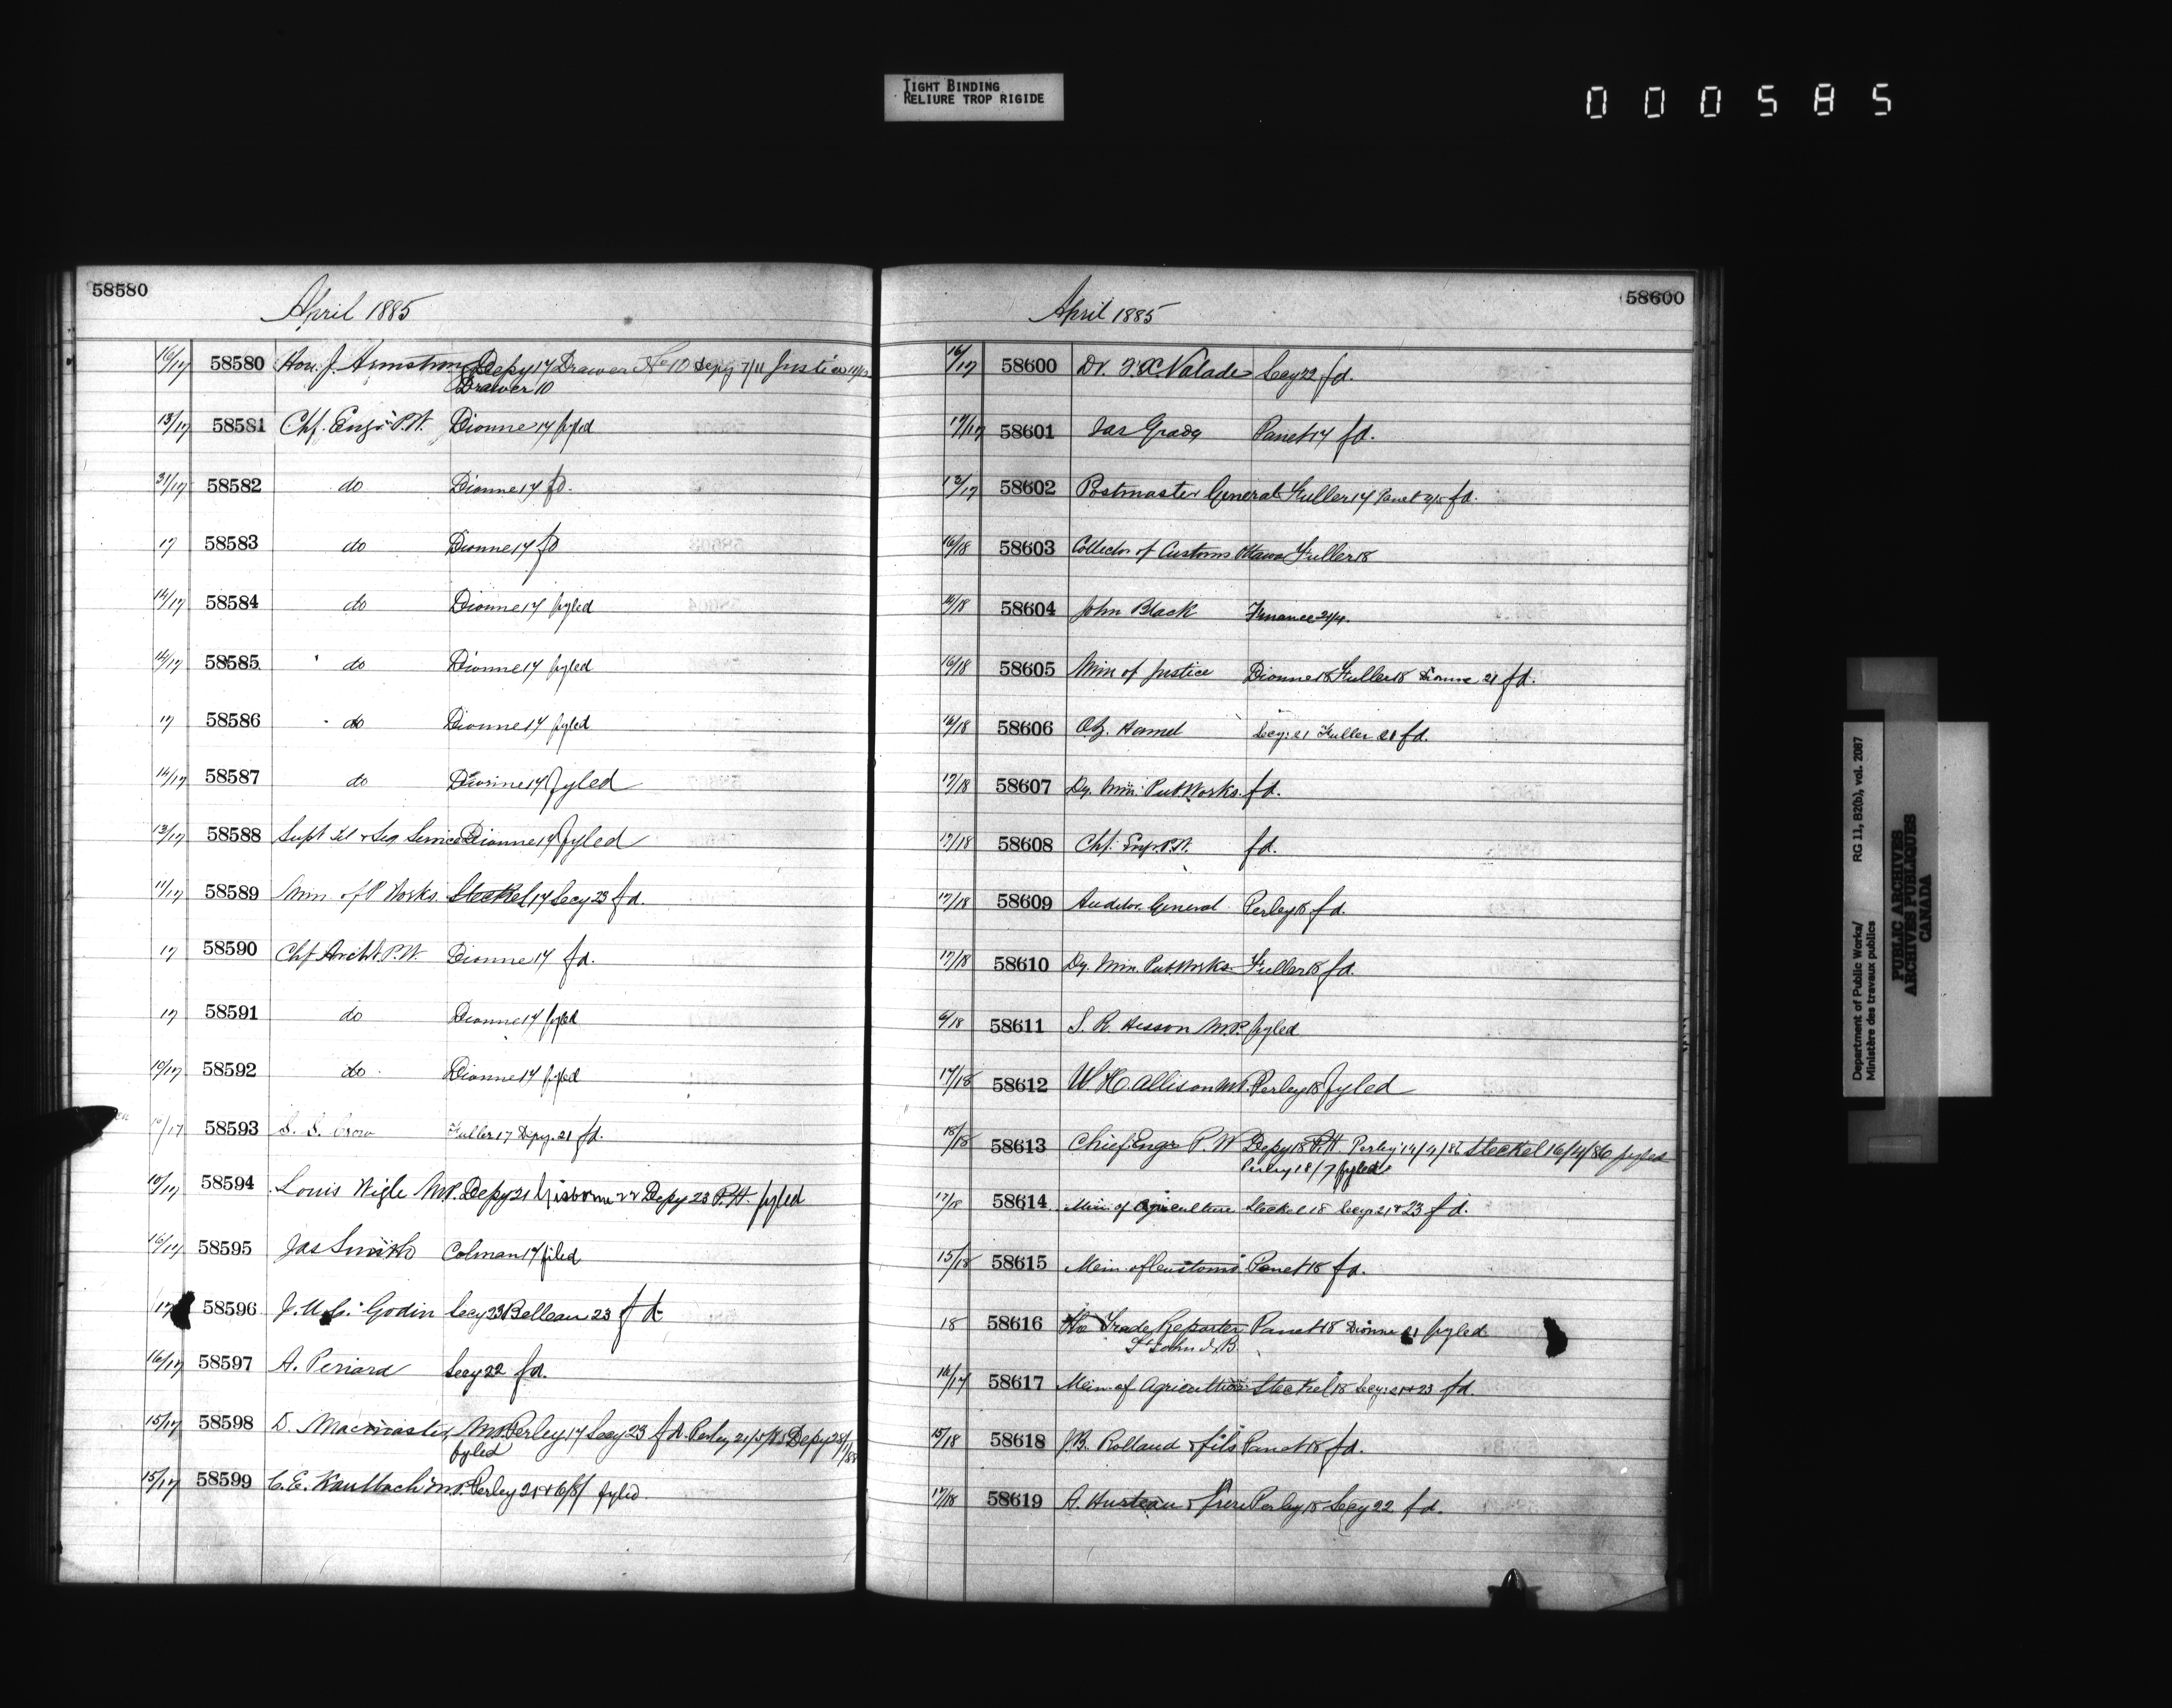 TIGHT BINDING
RELIURE TROP RIGIDE
000585
58580
April 1885
16/17 58580 Hon. J. Armstrong Depy 17 Drawer No 10 Depy 7/11 Justice
Drawer 10
13/17 58581 Chf. Engr. P.W. Dionne 17 fyled
31/17 58582 do Dionne 17 fd.
17 58583 do Dionne 17 fd
14/17 58584 do Dionne 17 fyled
14/17 58585 do Dionne 17 fyled
17 58586 do Dionne 17 fyled
14/17 58587 do Dionne 17 fyled
13/17 58588 Supt Tel & Sig Service Dionne 17 fyled
11/17 58589 Min. of P Works. Steckel 17 Secy 23 fd.
17 58590 Chf Archt P.W. Dionne 17 fd.
17 58591 do Dionne 17 fyled
10/17 58592 do Dionne 17 fyled
10/17 58593 S. S. Crow Fuller 17 Depy. 21 fd.
10/17 58594 Louis Wigle M.P. Depy 21 Gisborne 22 Depy 23 P.H. fyled
16/17 58595 Jas Smith Colman 17 filed
17 58596 J. U. Godin Secy 23 Belleau 23 fd
16/17 58597 A. Periard Secy 22 fd.
15/17 58598 D. Macmaster, M.P. Perley 17 Secy 23 fd. Perley 21/5/85 Depy 28/1/88
fyled
15/17 58599 C. E. Kaulbach M.P. Perley 21 & 6/8/ fyled.
58600
April 1885
16/17 58600 Dr. F. X. Valade Secy 22 fd.
17/17 58601 Jas Grady Panet 17 fd.
12/17 58602 Postmaster General Fuller 17 Panet fd.
16/18 58603 Collector of Customs Ottawa Fuller 18
16/18 58604 John Black Finance 21/4.
16/18 58605 Min of Justice Dionne 18 Fuller 18 Dionne 21 fd.
16/18 58606 Oz. Hamel Secy. 21 Fuller 21 fd.
17/18 58607 Dy. Min. Pub Works. fd.
17/18 58608 Chf. Engr. P.W. fd.
17/18 58609 Auditor General Perley 18 fd.
17/18 58610 Dy. Min. Pub Works Fuller 18 fd.
6/18 58611 S. R. Hesson M.P. fyled
17/18 58612 W. H. Allison M.P. Perley 18 fyled
18/18 58613 Chief Engr P. W Depy 18 P.H. Perley 14/4/86 Steckel 16/4/86 fyled
Perley 18/7 fyled
17/18 58614 Min of Agriculture Steckel 18 Secy 21 & 23 fd.
15/18 58615 Min. of Customs Panet 18 fd.
18 58616 The Trade Reporter Panet 18 Dionne 21 fyled
St John N.B.
16/17 58617 Min. of Agriculture Steckel 18 Secy. 21 & 23 fd.
15/18 58618 J.B. Rolland & fils Panet 18 fd.
17/18 58619 A. Hurteau & frere Perley 18 Secy 22 fd.
Department of Public Works/ RG 11, B2(b), vol. 2087
Ministère des travaux publics
PUBLIC ARCHIVES
ARCHIVES PUBLIQUES
CANADA